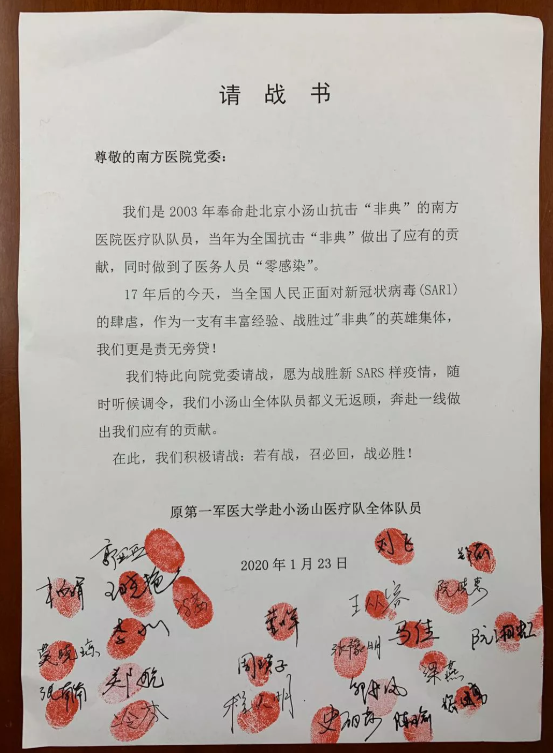 请 战 书
尊敬的南方医院党委：
我们是 2003 年奉命赴北京小汤山抗击“非典”的南方
医院医疗队队员，当年为全国抗击“非典”做出了应有的贡
献，同时做到了医务人员“零感染”。
17 年后的今天，当全国人民正面对新冠状病毒(SARl)
的肆虐，作为一支有丰富经验、战胜过"非典"的英雄集体，
我们更是责无旁贷！
我们特此向院党委请战，愿为战胜新 SARS 样疫情，随
时听候调令，我们小汤山全体队员都义无返顾，奔赴一线做
出我们应有的贡献。
在此，我们积极请战：若有战，召必回，战必胜！
原第一军医大学赴小汤山医疗队全体队员
2020 年 1 月 23 日
刘飞
马佳
梁燕